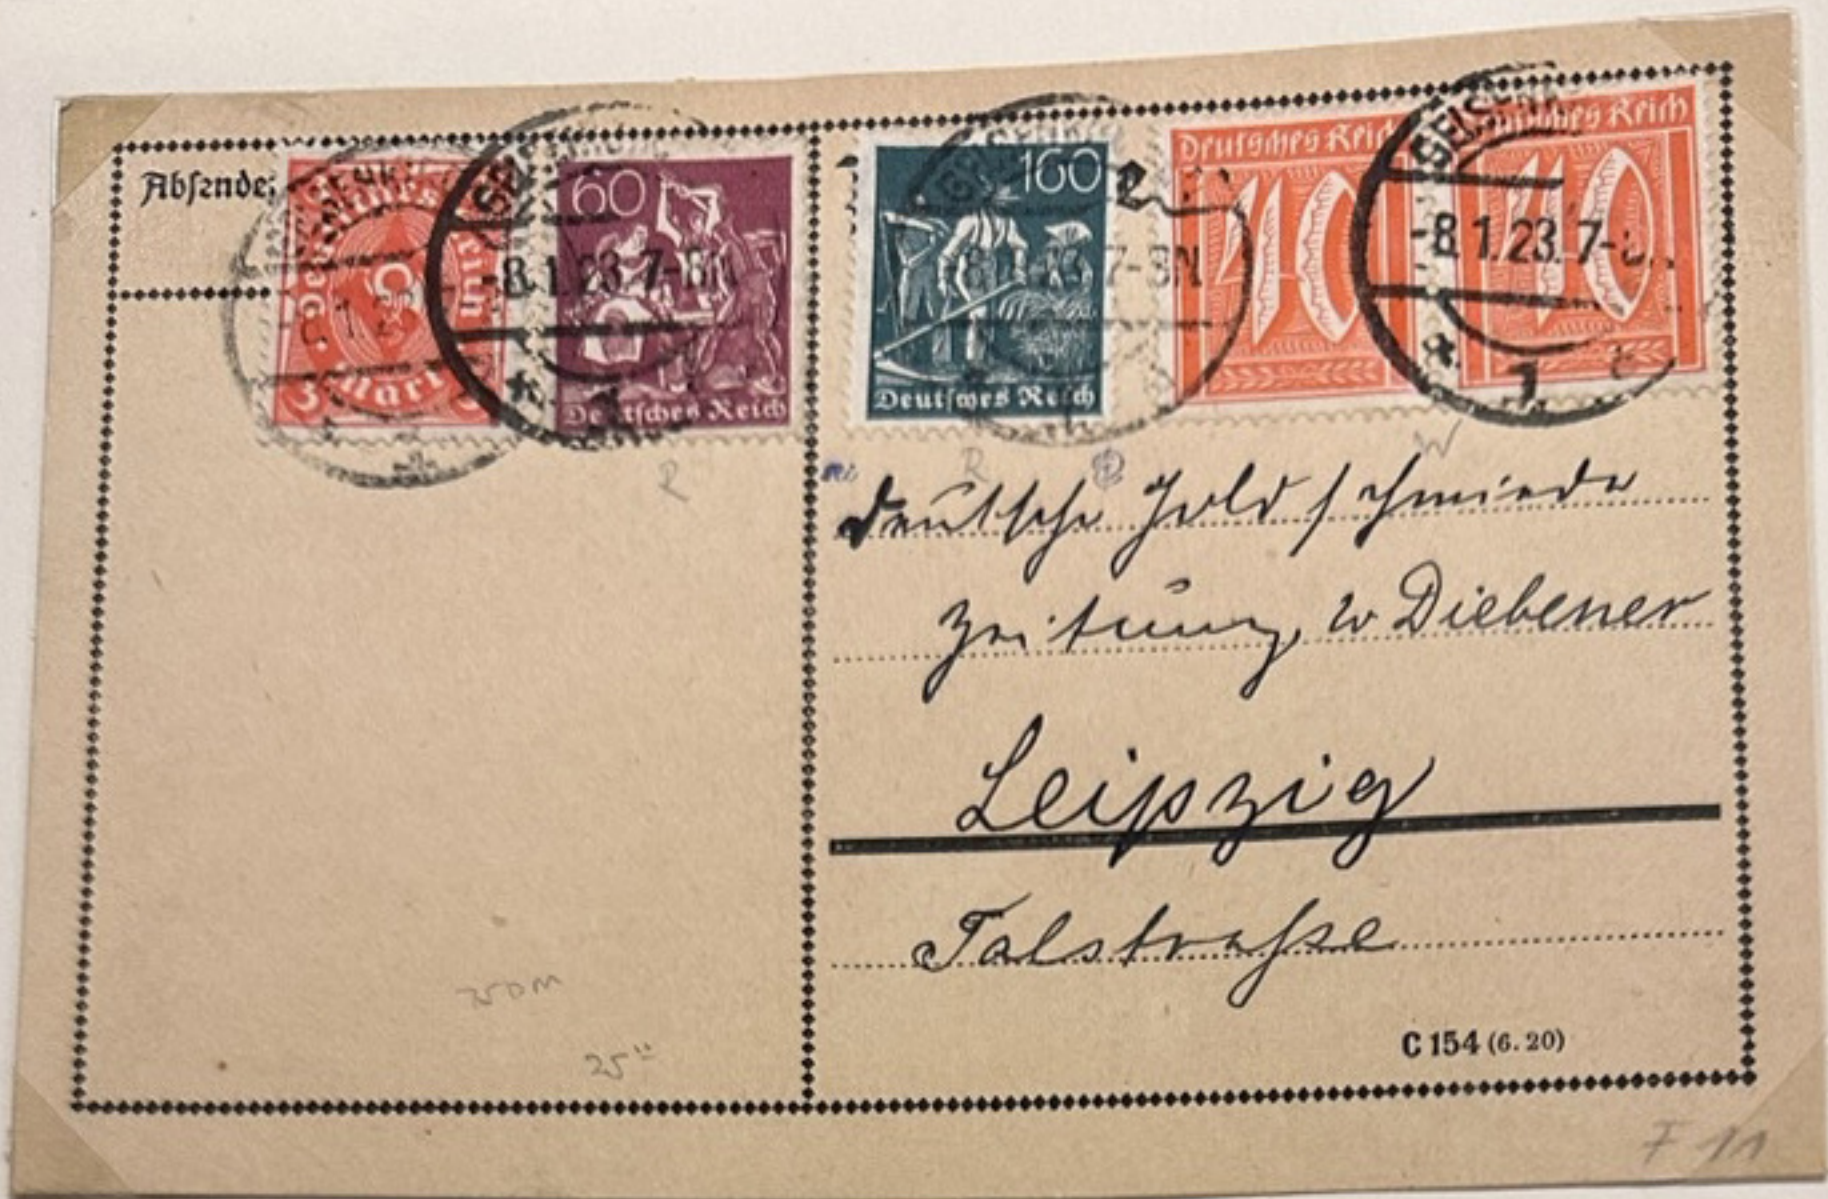 Absender
Deutsches Reich
3 Mark 3
60
Deutsches Reich
160
Deutsches Reich
Deutsches Reich
40
Deutsches Reich
40
-8.1.23.7-8N
-8.1.23.7-8N
-8.1.23.7-
1
Deutsche Goldschmiede
Zeitung, W Diebener
Leipzig
Talstraße
C 154 (6. 20)
25 DM
25"
F 11